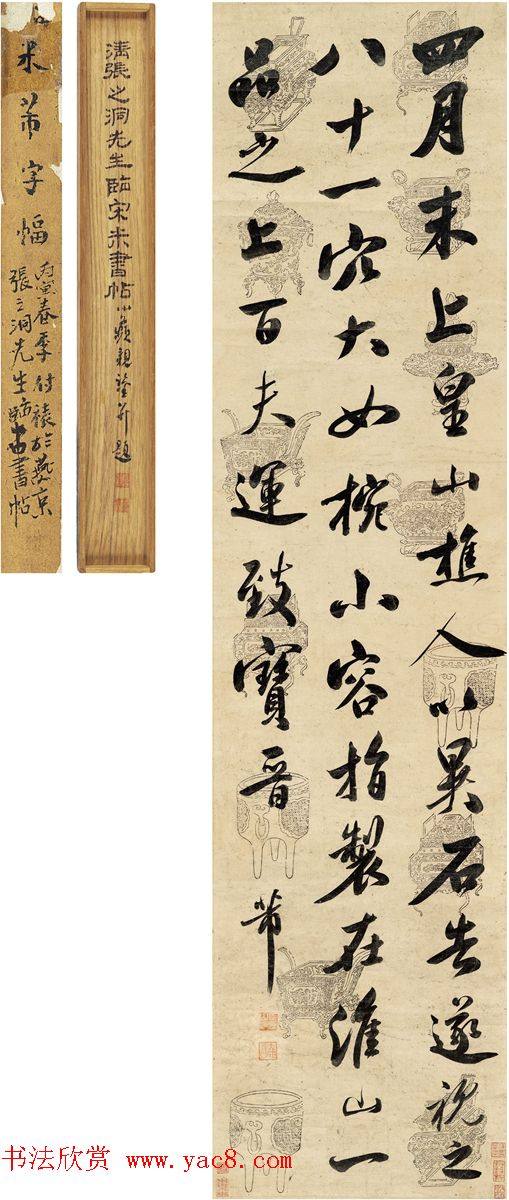 四月末上皇山樵人以異石告遂視之
八十一穴大如椀小容指製在淮山一
品之上百夫運致寶晉
芾
清張之洞先生臨宋米書帖
并題
米芾字幅
丙寅春季付裱於燕京
張之洞先生臨芾書帖
书法欣赏 www.yac8.com